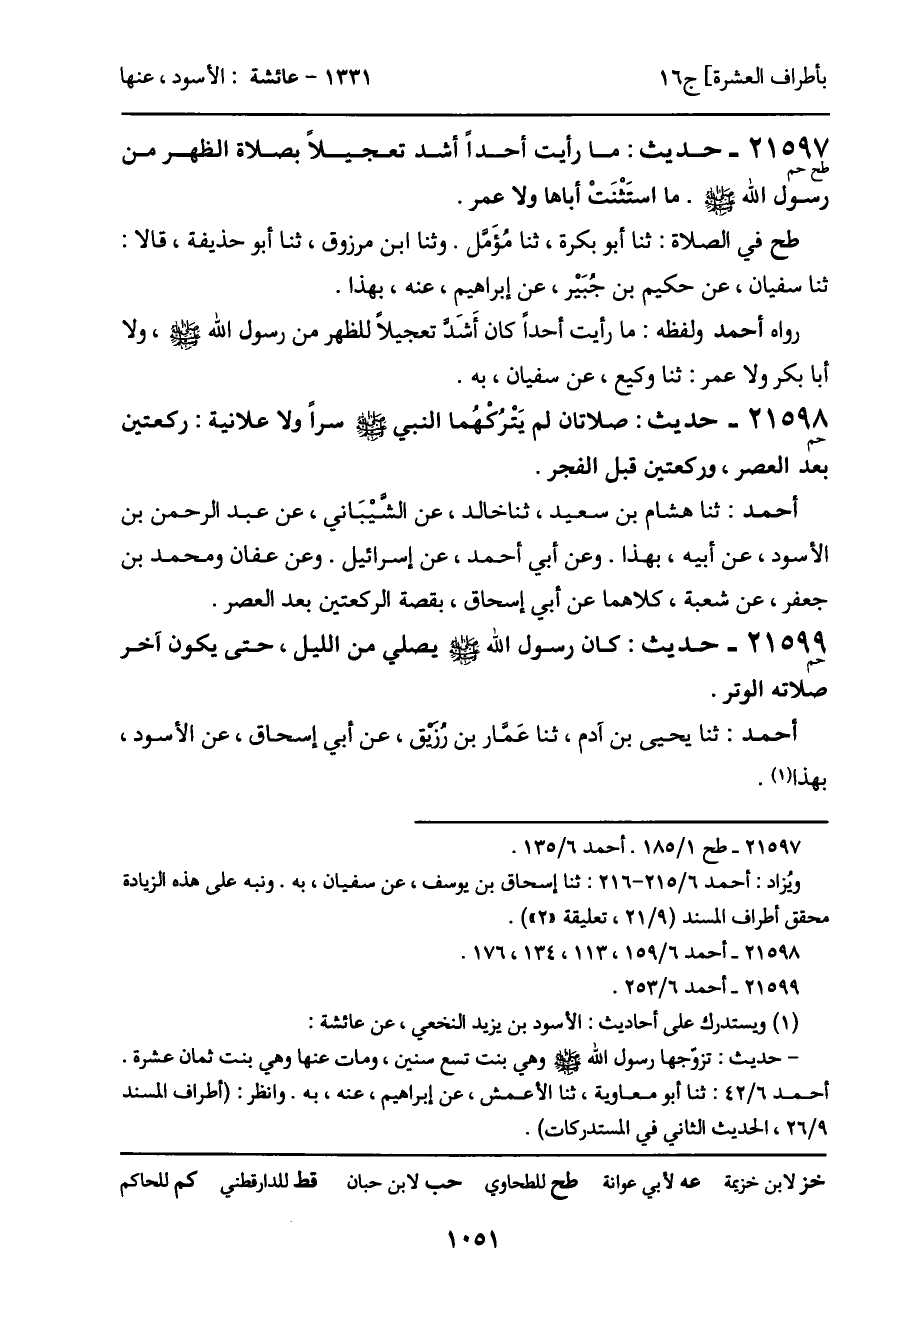 بأطراف العشرة] ج١٦
١٣٣١ - عائشة : الأسود ، عنها
٢١٥٩٧ - حـديث : مـا رأيت أحـداً أشد تعـجيـلاً بصلاة الظهـر مـن
طح حم
رسـول الله ﷺ . ما استَثْنَتْ أباها ولا عمر .
طح في الصلاة : ثنا أبو بكرة ، ثنا مُؤَمَّل . وثنا ابن مرزوق ، ثنا أبو حذيفة ، قالا :
ثنا سفيان ، عن حكيم بن جُبَيْر ، عن إبراهيم ، عنه ، بهذا .
رواه أحمد ولفظه : ما رأيت أحداً كان أَشَدَّ تعجيلاً للظهر من رسول الله ﷺ ، ولا
أبا بكر ولا عمر : ثنا وكيع ، عن سفيان ، به .
٢١٥٩٨ - حديث : صلاتان لم يَتْرُكْهُما النبي ﷺ سراً ولا علانية : ركعتين
حم
بعد العصر ، وركعتين قبل الفجر .
أحمـد : ثنا هشام بن سعيد ، ثناخالد ، عن الشَّيْبَاني ، عن عبد الرحمن بن
الأسود ، عن أبيه ، بهذا . وعن أبي أحمد ، عن إسرائيل . وعن عفان ومحمد بن
جعفر ، عن شعبة ، كلاهما عن أبي إسحاق ، بقصة الركعتين بعد العصر .
٢١٥٩٩ - حـديث : كـان رسـول الله ﷺ يصلي من الليل ، حتى يكون آخـر
حم
صلاته الوتر .
أحمـد : ثنا يحيى بن آدم ، ثنا عَمَّار بن رُزَيْق ، عن أبي إسحاق ، عن الأسود ،
بهذا(١) .
٢١٥٩٧ - طح ١/١٨٥ . أحمد ٦/١٣٥ .
ويُزاد : أحمد ٦/٢١٥-٢١٦ : ثنا إسحاق بن يوسف ، عن سفيان ، به . ونبه على هذه الزيادة
محقق أطراف المسند (٩/٢١ ، تعليقة «٢») .
٢١٥٩٨ - أحمد ٦/١٥٩ ، ١١٣ ، ١٣٤ ، ١٧٦ .
٢١٥٩٩ - أحمد ٦/٢٥٣ .
(١) ويستدرك على أحاديث : الأسود بن يزيد النخعي ، عن عائشة :
- حديث : تزوّجها رسول الله ﷺ وهي بنت تسع سنين ، ومات عنها وهي بنت ثمان عشرة .
أحـمـد ٦/٤٢ : ثنا أبو مـعـاوية ، ثنا الأعـمش ، عن إبراهيم ، عنه ، به . وانظر : (أطراف المسند
٩/٢٦ ، الحديث الثاني في المستدركات) .
خز لابن خزيمة   عه لأبي عوانة   طح للطحاوي   حب لابن حبان   قط للدارقطني   كم للحاكم
١٠٥١